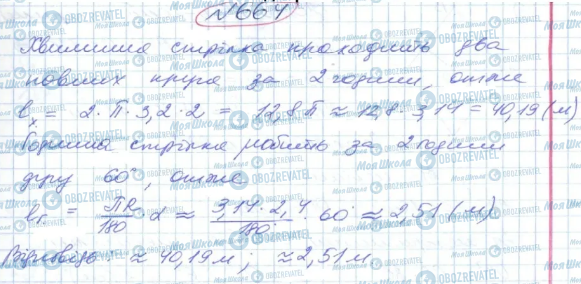 №664
Хвилинна стрілка проходить два
повних круга за 2 години, отже
lₓ = 2 · π · 3,2 · 2 = 12,8 π ≈ 12,8 · 3,14 = 40,19 (м)
Годинна стрілка робить за 2 години
дугу 60°, отже
lг = πR/180 · α ≈ 3,14 · 2,4/180 · 60° ≈ 2,51 (м)
Відповідь: ≈ 40,19 м; ≈ 2,51 м